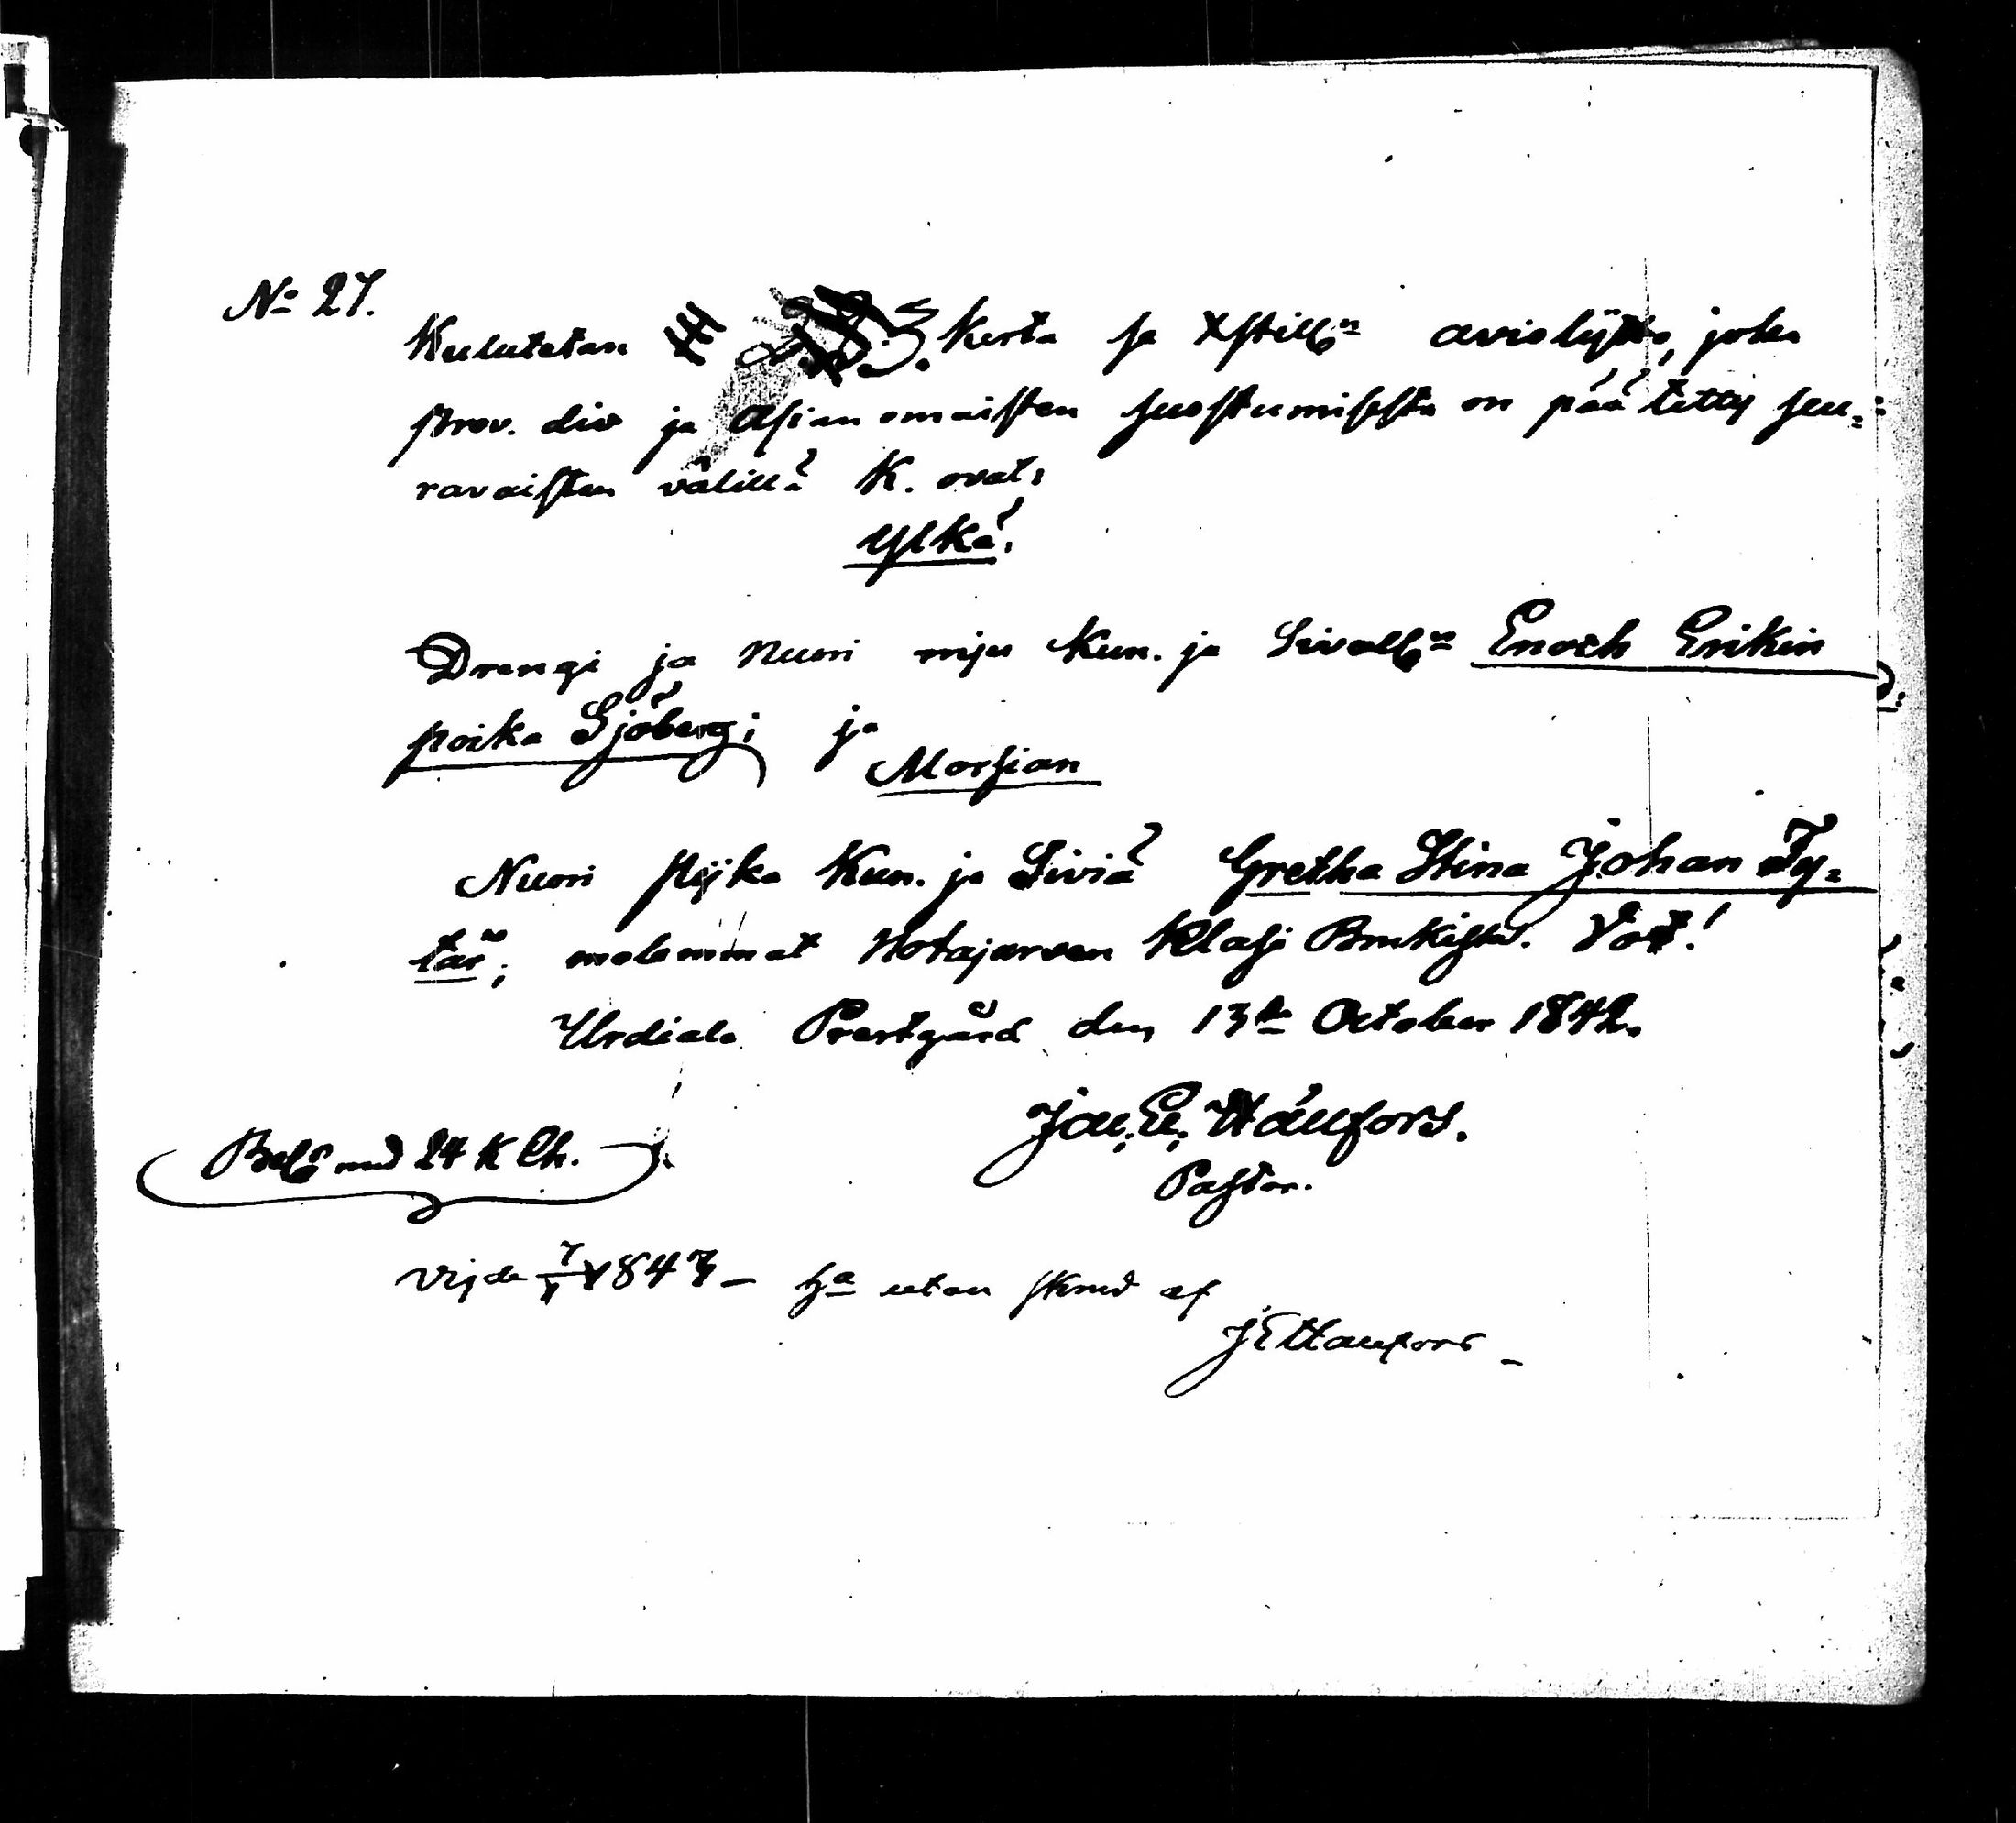 No 27.
Kulutetan 3. kerta ja Xstillen avioliitto, joka
prov. div ja Asianomaisten suostumisesta on päätetty seu-
ravaisten välillä K. ovat:
Ylkä:
Drengi ja Nuori mies Kun. ja Sivollen Enoch Erikin
poika Sjöberg; ja
Morsian
Nuori piika Kun. ja Siviä Gretha Stina Johan Ty-
tär; molemmat Notajarven Klasi Brukista. Vot!
Urdiala Prestgård den 13de October 1842.
Pastor.
med 24 k
Vigde 1843 - utan af